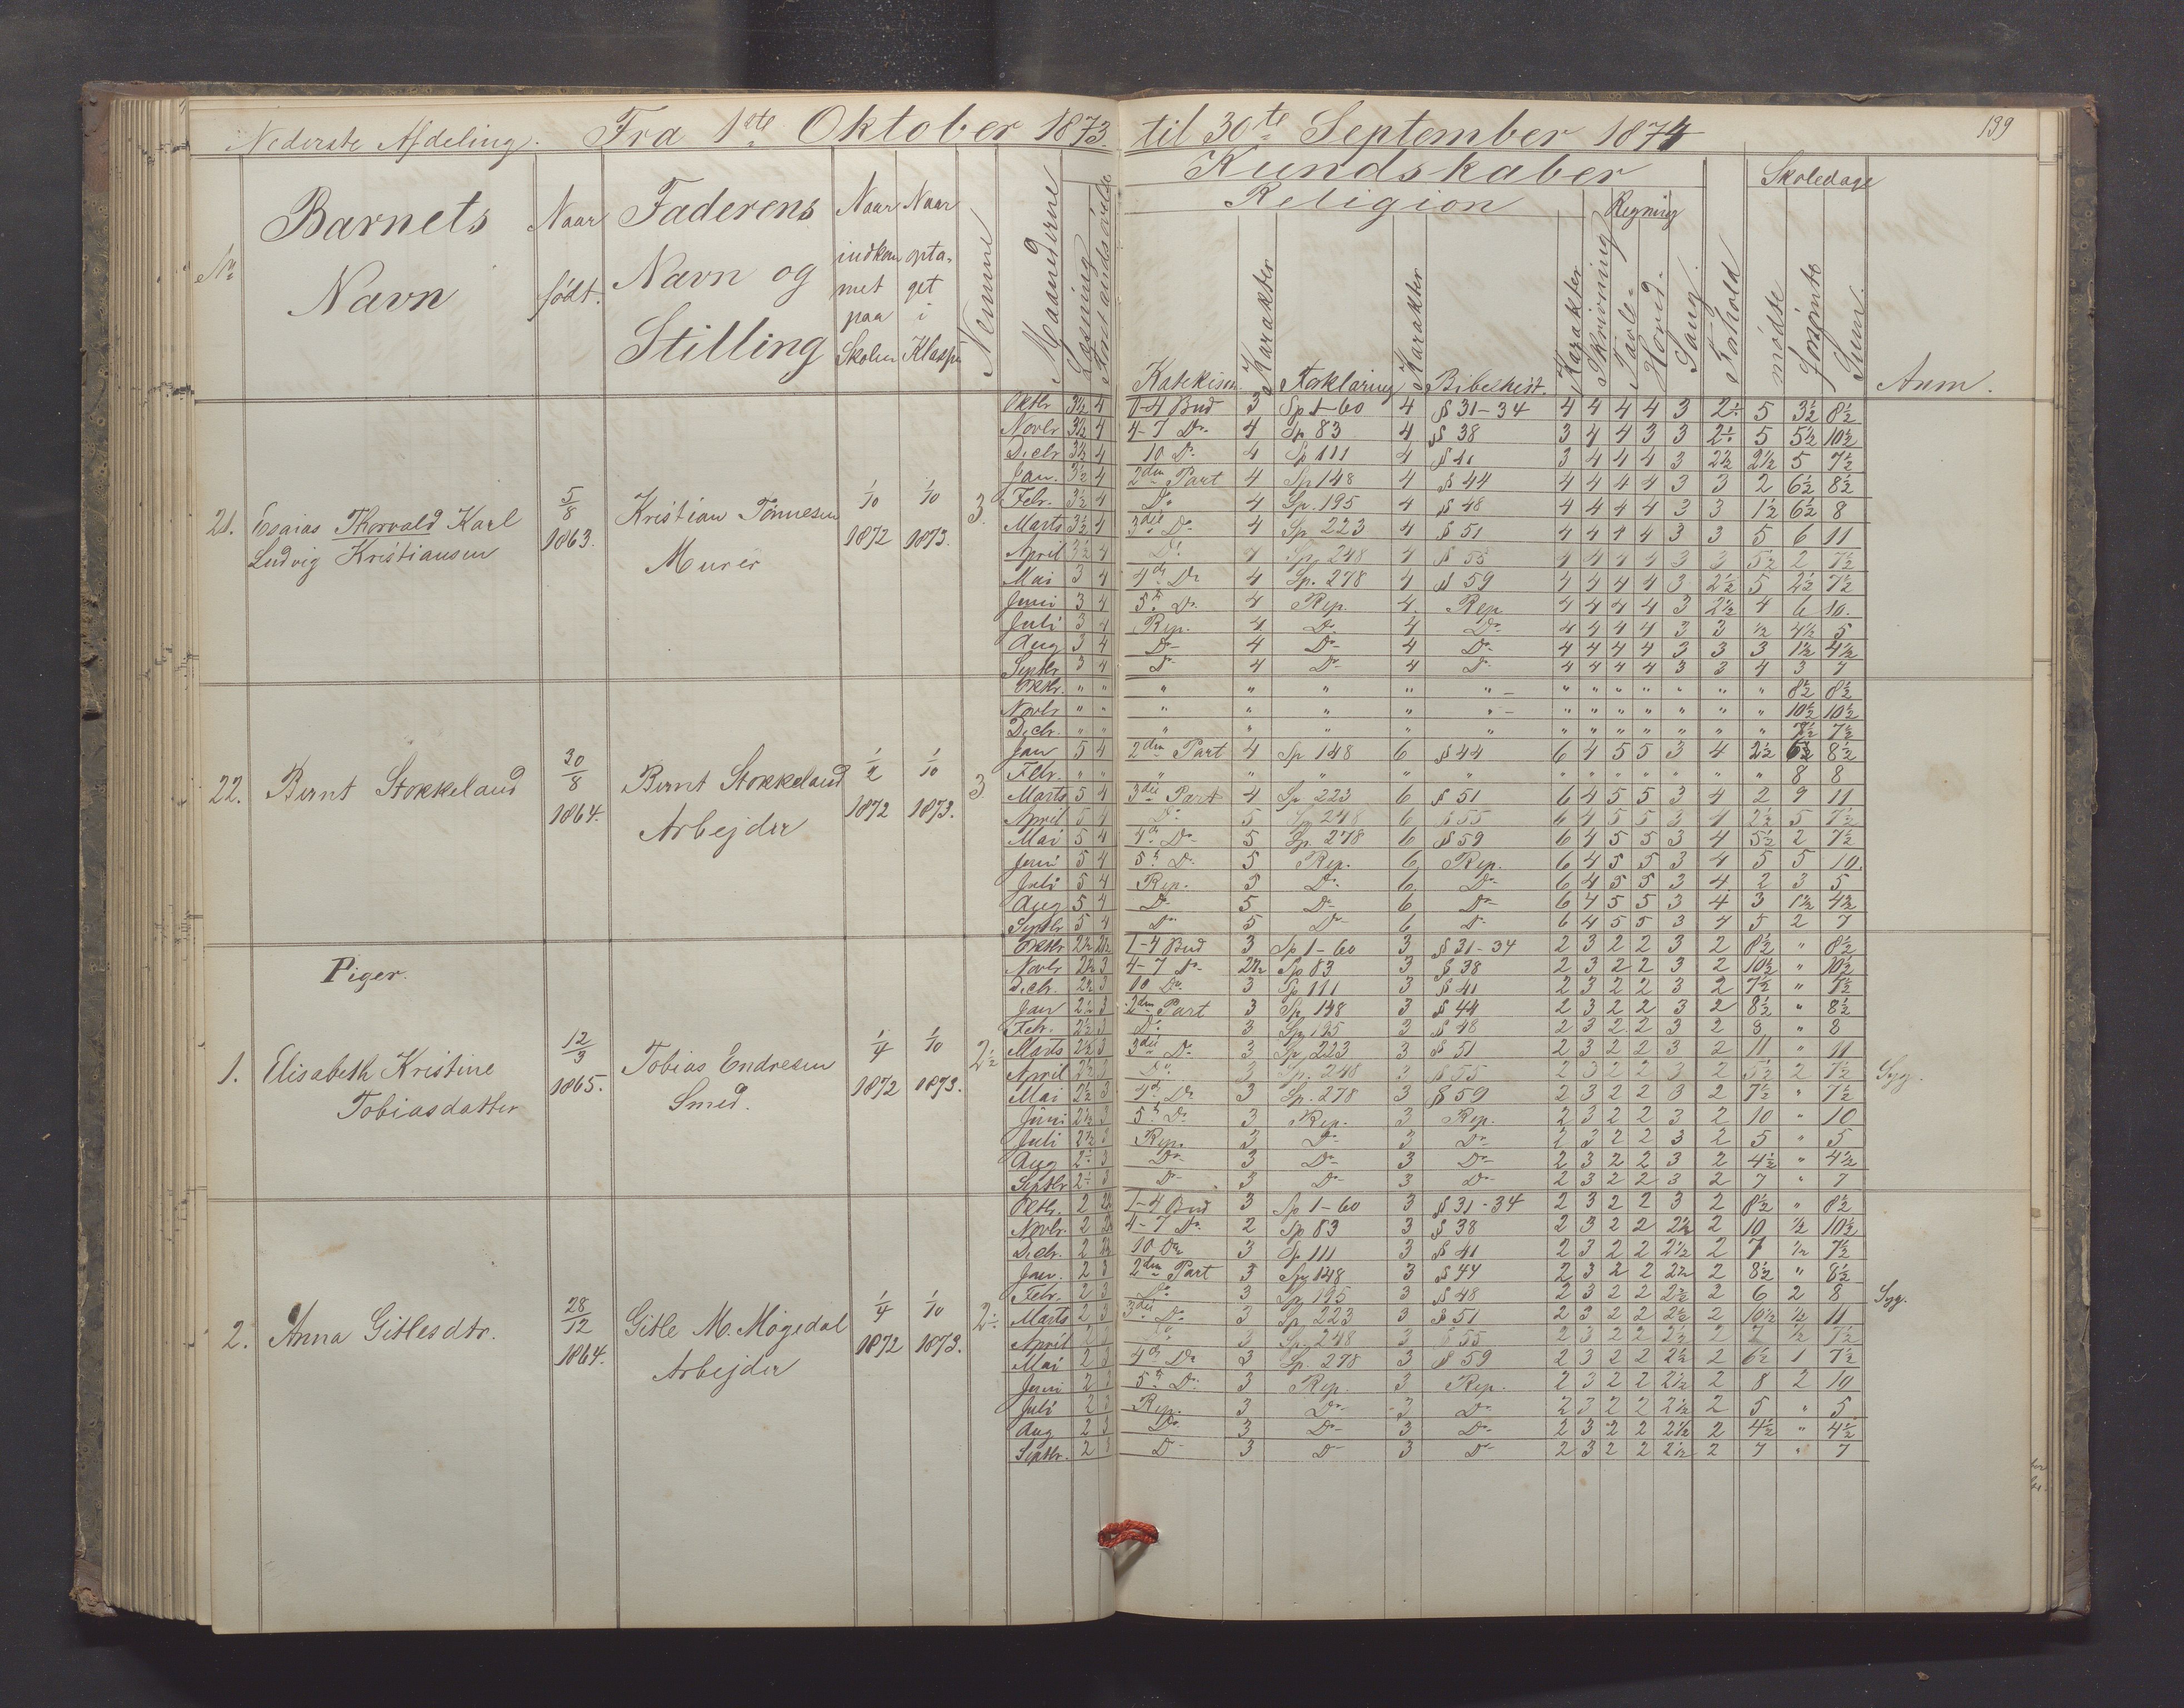 Nederste Afdeling. Fra 1ste Oktober 1873. til 30te September 1874 139
Kundskaber Skoledage
Religion Regning
No Barnets Navn Naar født. Faderens Navn og Stilling Naar indkommet paa Skolen Naar optaget i Klassen Nemme Maanederne Læsning Forstandsøvelse Katekism. Karakter Forklaring Karakter Bibelhist. Karakter Skrivning Tavle- Hoved- Sang. Forhold mødte forsømte Sum. Anm.
21. Esaias Thorvald Karl Ludvig Kristiansen 5/8 1863. Kristian Tönnesen Murer 1/10 1872 1/10 1873. 3.
Oktbr. 3½ 4 1-4 Bud 3 Sp 1-60 4 § 31-34 4 4 4 4 3 2½ 5 3½ 8½
Novbr. 3½ 4 4-7 Do. 4 Sp 83 4 § 38 3 4 4 3 3 2½ 5 5½ 10½
Decbr. 3½ 4 10 Do. 4 Sp 111 4 § 41 3 4 4 4 3 2½ 2½ 5 7½
Jan. 3½ 4 2den Part 4 Sp 148 4 § 44 4 4 4 4 3 3 2 6½ 8½
Febr. 3½ 4 Do. 4 Sp. 195 4 § 48 4 4 4 4 3 3 1½ 6½ 8
Marts 3½ 4 3die Do. 4 Sp 223 4 § 51 4 4 4 4 3 3 5 6 11
April 3½ 4 Do. 4 Sp. 248 4 § 55 4 4 4 4 3 3 5½ 2 7½
Mai 3 4 4de Do 4 Sp. 278 4 § 59 4 4 4 4 3 2½ 5 2½ 7½
Juni 3 4 5te Do. 4 Rep. 4. Rep. 4 4 4 4 3 2½ 4 6 10.
Juli 3 4 Rep. 4 Do. 4 Do. 4 4 4 4 3 3 ½ 4½ 5
Aug 3 4 Do 4 Do 4 Do. 4 4 4 4 3 3 3 1½ 4½
Septbr 3 4 Do 4 Do 4 Do. 4 4 4 4 3 3 4 3 7
22. Bernt Stokkeland 30/8 1864. Bernt Stokkeland Arbejder 1/2 1872 1/10 1873. 3
Oktbr. " " " " " " " " " " " " " " 8½ 8½
Novbr " " " " " " " " " " " " " " 10½ 10½
Decbr. " " " " " " " " " " " " " " 7½ 7½
Jan 5 4 2den Part 4 Sp 148 6 § 44 6 4 5 5 3 4 2½ 6½ 8½
Febr. " " " " " " " " " " " " " " 8 8
Marts 5 4 3die Part 4 Sp 223 6 § 51 6 4 5 5 3 4 2 9 11
April 5 4 Do. 5 Sp 248 6 § 55 6 4 5 5 3 4 2½ 5 7½
Mai 5 4 4de Do 5 Sp. 278 6 § 59 6 4 5 5 3 4 5½ 2 7½
Juni 5 4 5te Do. 5 Rep. 6 Rep. 6 4 5 5 3 4 5 5 10.
Juli 5 4 Rep. 5 Do. 6 Do 6 4 5 5 3 4. 2 3 5
Aug 5 4 Do 5 Do 6 Do 6 4 5 5 3 4 3 1½ 4½
Septbr. 5 4 Do 5 Do 6 Do 6 4 5 5 3 4 5 2 7
Piger.
1. Elisabeth Kristine Tobiasdatter 12/3 1865. Tobias Endresen Smed. 1/4 1872 1/10 1873. 2½
Oktbr 2½ 2½ 1-4 Bud 3 Sp 1-60 3 § 31-34 2 3 2 2 3 2 8½ " 8½
Novbr 2½ 3 4-7 Do. 2½ Sp 83 3 § 38 2 3 2 2 3 2 10½ " 10½
Decbr. 2½ 3 10 Do. 3 Sp 111 3 § 41 2 3 2 2 3 2 7½ " 7½
Jan 2½ 3 2den Part 3 Sp 148 3 § 44 2 3 2 2 3 2 8½ " 8½
Febr. 2½ 3 Do. 3 Sp 195 3 § 48 2 3 2 2 3 2 8 " 8
Marts 2½ 3 3die Do. 3 Sp 223 3 § 51 2 3 2 2 3 2 11 " 11
April 2½ 3 Do. 3 Sp. 248 3 § 55 2 3 2 2 3 2 5½ 2 7½ Syg.
Mai 2½ 3 4de Do 3 Sp. 278 3 § 59 2 3 2 2 3 2 7½ " 7½
Juni 2½ 3 5te Do. 3 Rep. 3 Rep. 2 3 2 2 3 2 10 " 10
Juli 2½ 3 Rep. 3 Do 3 Do 2 3 2 2 3 2 5 " 5
Aug 2½ 3 Do 3 Do 3 Do 2 3 2 2 3 2 4½ " 4½
Septbr 2½ 3 Do 3 Do 3 Do 2 3 2 2 3 2 7 " 7
2. Anna Gitlesdtr. 28/12 1864. Gitle M. Mögedal Arbejder 1/4 1872 1/10 1873. 2½
Oktbr. 2 2½ 1-4 Bud 3 Sp 1-60 3 § 31-34 2 3 2 2 3 2 8½ " 8½
Novbr. 2 2½ 4-7 Do. 2 Sp 83 3 § 38 2 3 2 2 2½ 2 10 ½ 10½
Decbr. 2 2½ 10 Do 3 Sp 111 3 § 41 2 3 2 2 2½ 2 7 ½ 7½
Jan. 2 3 2den Part 3 Sp 148 3 § 44 2 3 2 2 2½ 2 8½ " 8½
Febr. 2 3 Do. 3 Sp 195 3 § 48 2 3 2 2 2½ 2 6 2 8 Syg.
Marts 2 3 3die Do. 3 Sp 223 3 § 51 2 3 2 2 2½ 2 10½ ½ 11
April 2 3 Do. 3 Sp. 248 3 § 55 2 3 2 2 2½ 2 7 ½ 7½
Mai 2 3 4de Do 3 Sp. 278 3 § 59 2 3 2 2 2½ 2 6½ 1 7½
Juni 2 3 5te Do. 3 Rep. 3 Rep. 2 3 2 2 2½ 2 8 2 10
Juli 2 3 Rep. 3 Do 3 Do 2 3 2 2 2½ 2 5 " 5
Aug 2 3 Do. 3 Do 3 Do 2 3 2 2 2½ 2 4½ " 4½
Septbr. 2 3 Do 3 Do 3 Do 2 3 2 2 2½ 2 7 " 7